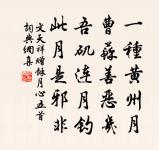 一種黃州月
曹蘇善惡幾
吾矶連月釣
此月是邪非
文天祥贈餘月心五首
詞典網集